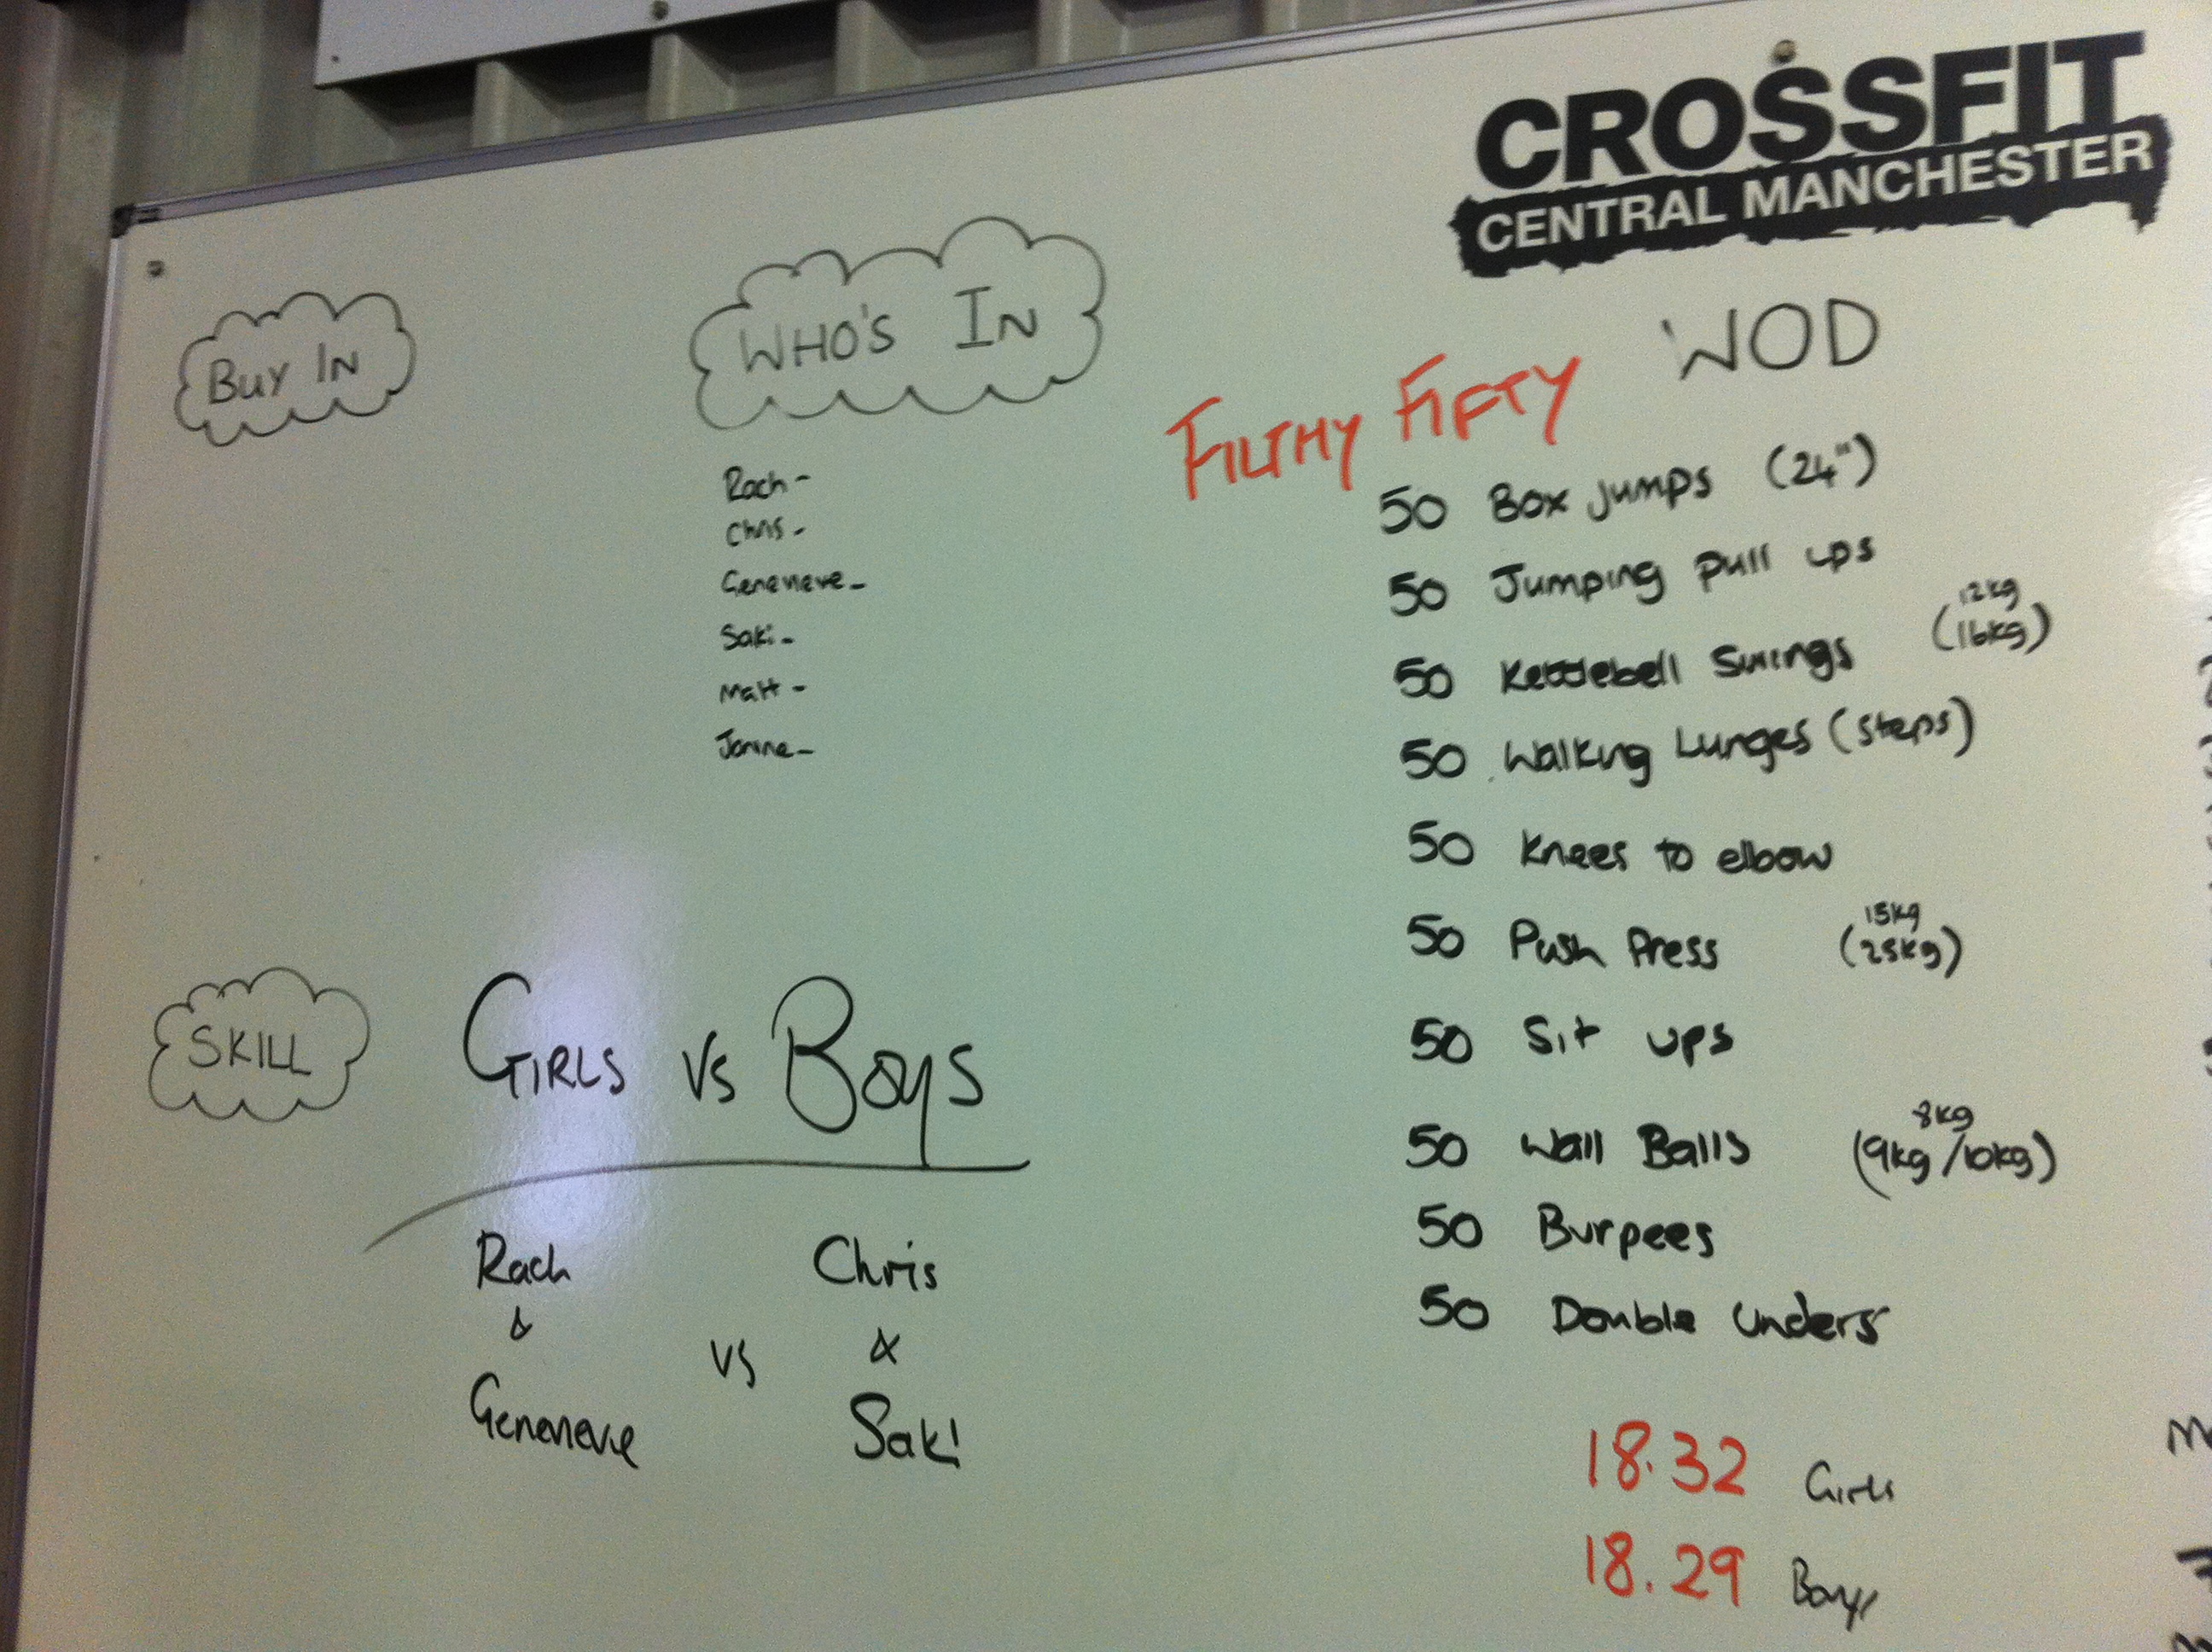 CROSSFIT
CENTRAL MANCHESTER
BUY IN
WHO'S IN
Rach -
Chris -
Genevieve -
Saki -
Matt -
Janine -
WOD
FILTHY FIFTY
50 Box Jumps (24")
50 Jumping Pull ups
50 Kettlebell Swings (16kg)
12kg
50 Walking Lunges (steps)
50 Knees to elbow
50 Push Press (25kg)
15kg
50 Sit ups
50 Wall Balls (9kg/10kg)
8kg
50 Burpees
50 Double Unders
18.32 Girls
18.29 Boys
SKILL
GIRLS VS BOYS
Rach
&
Genevieve
VS
Chris
&
Saki